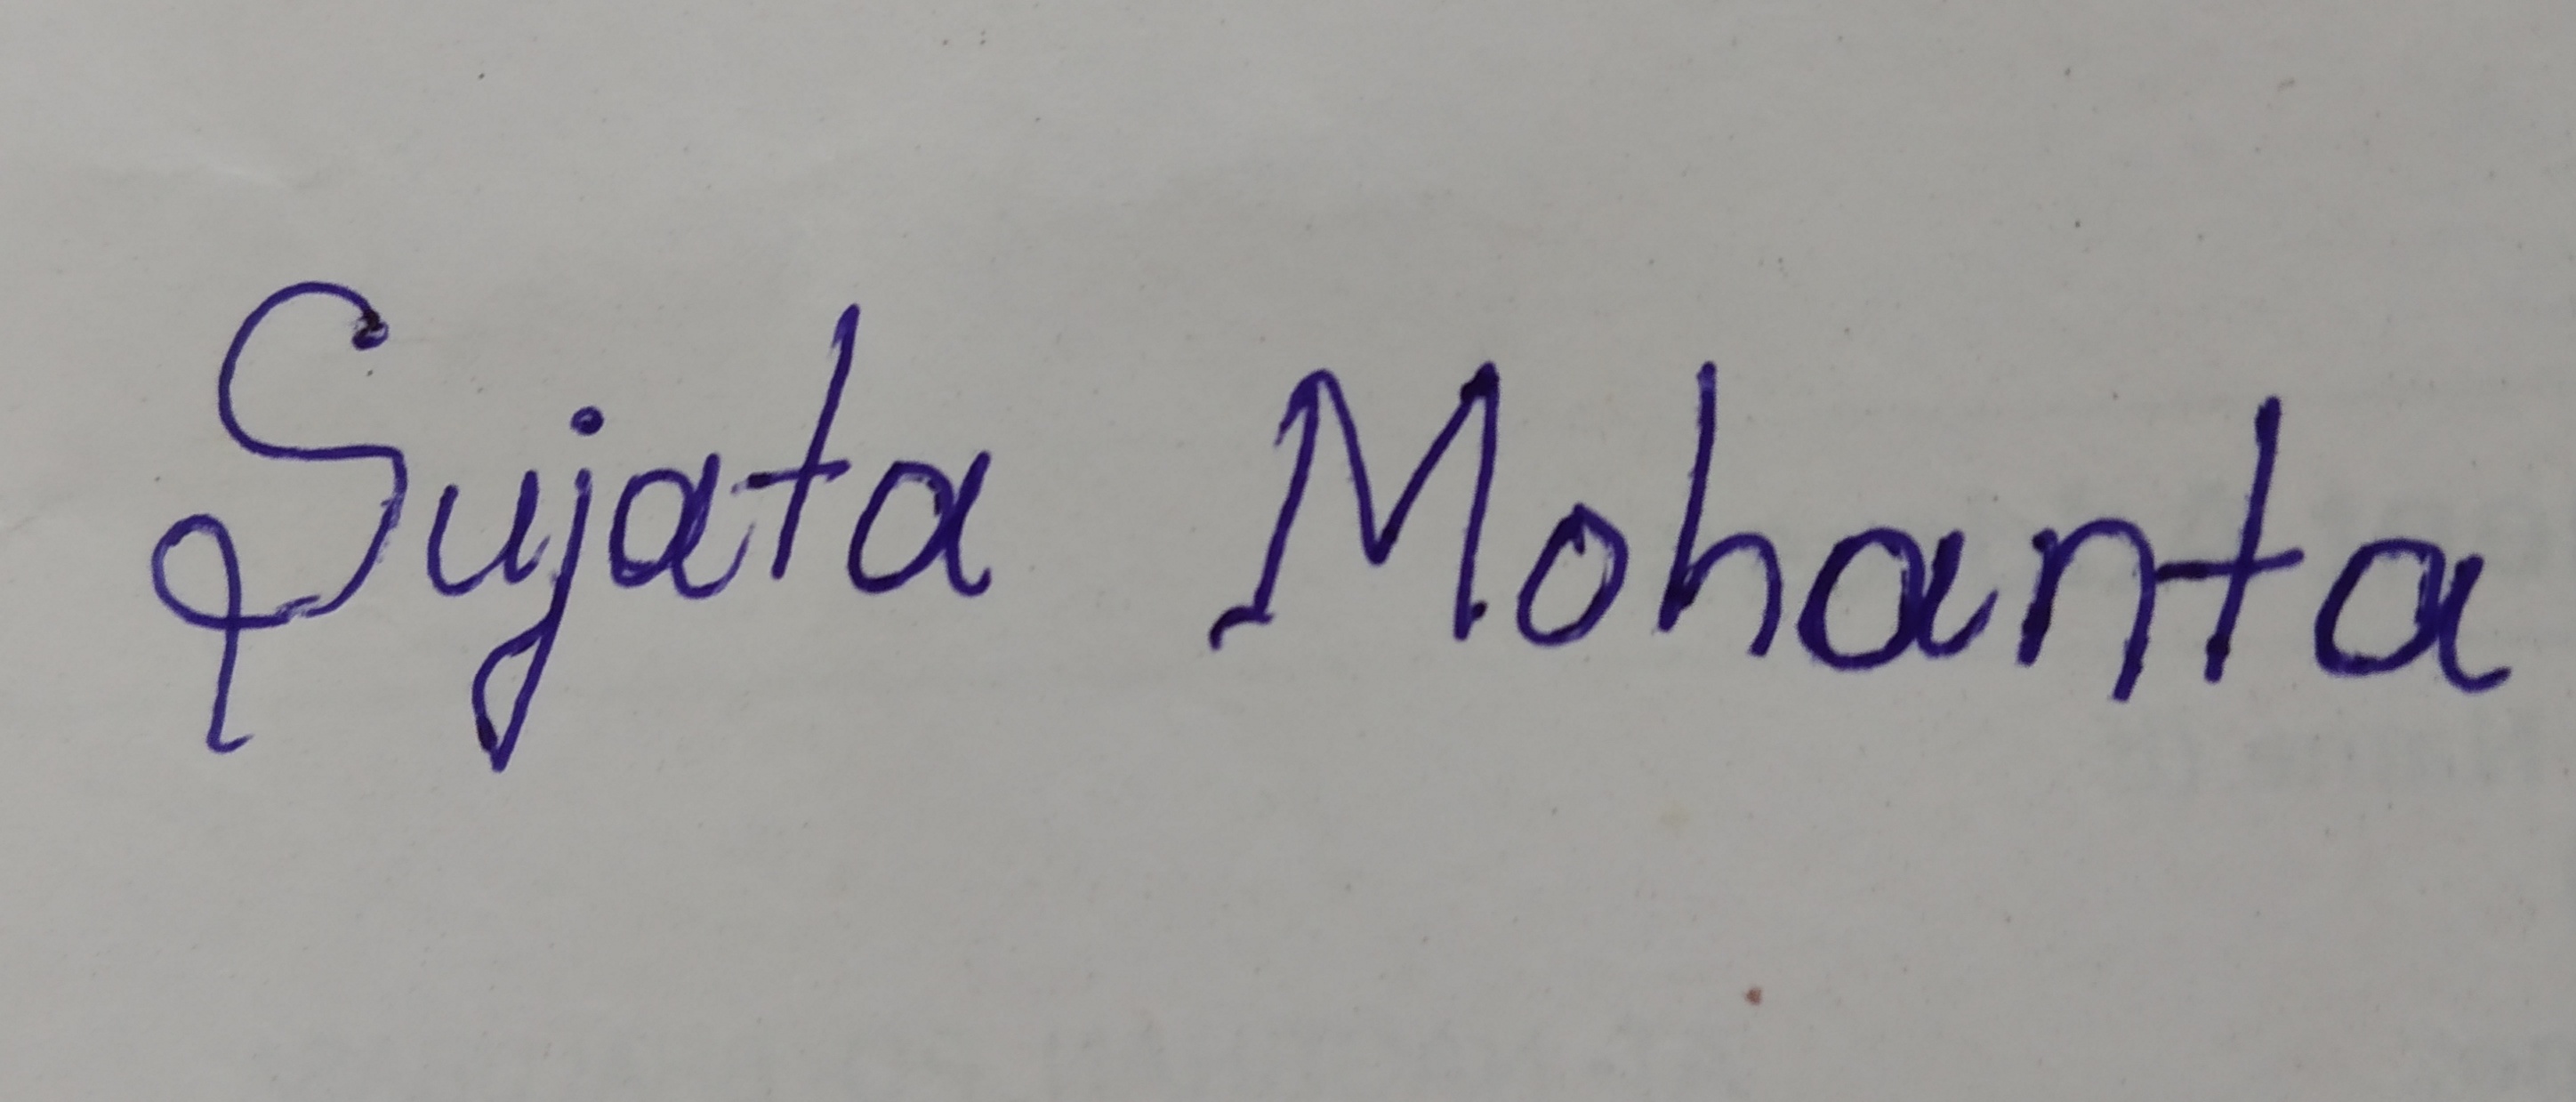 Sujata Mohanta